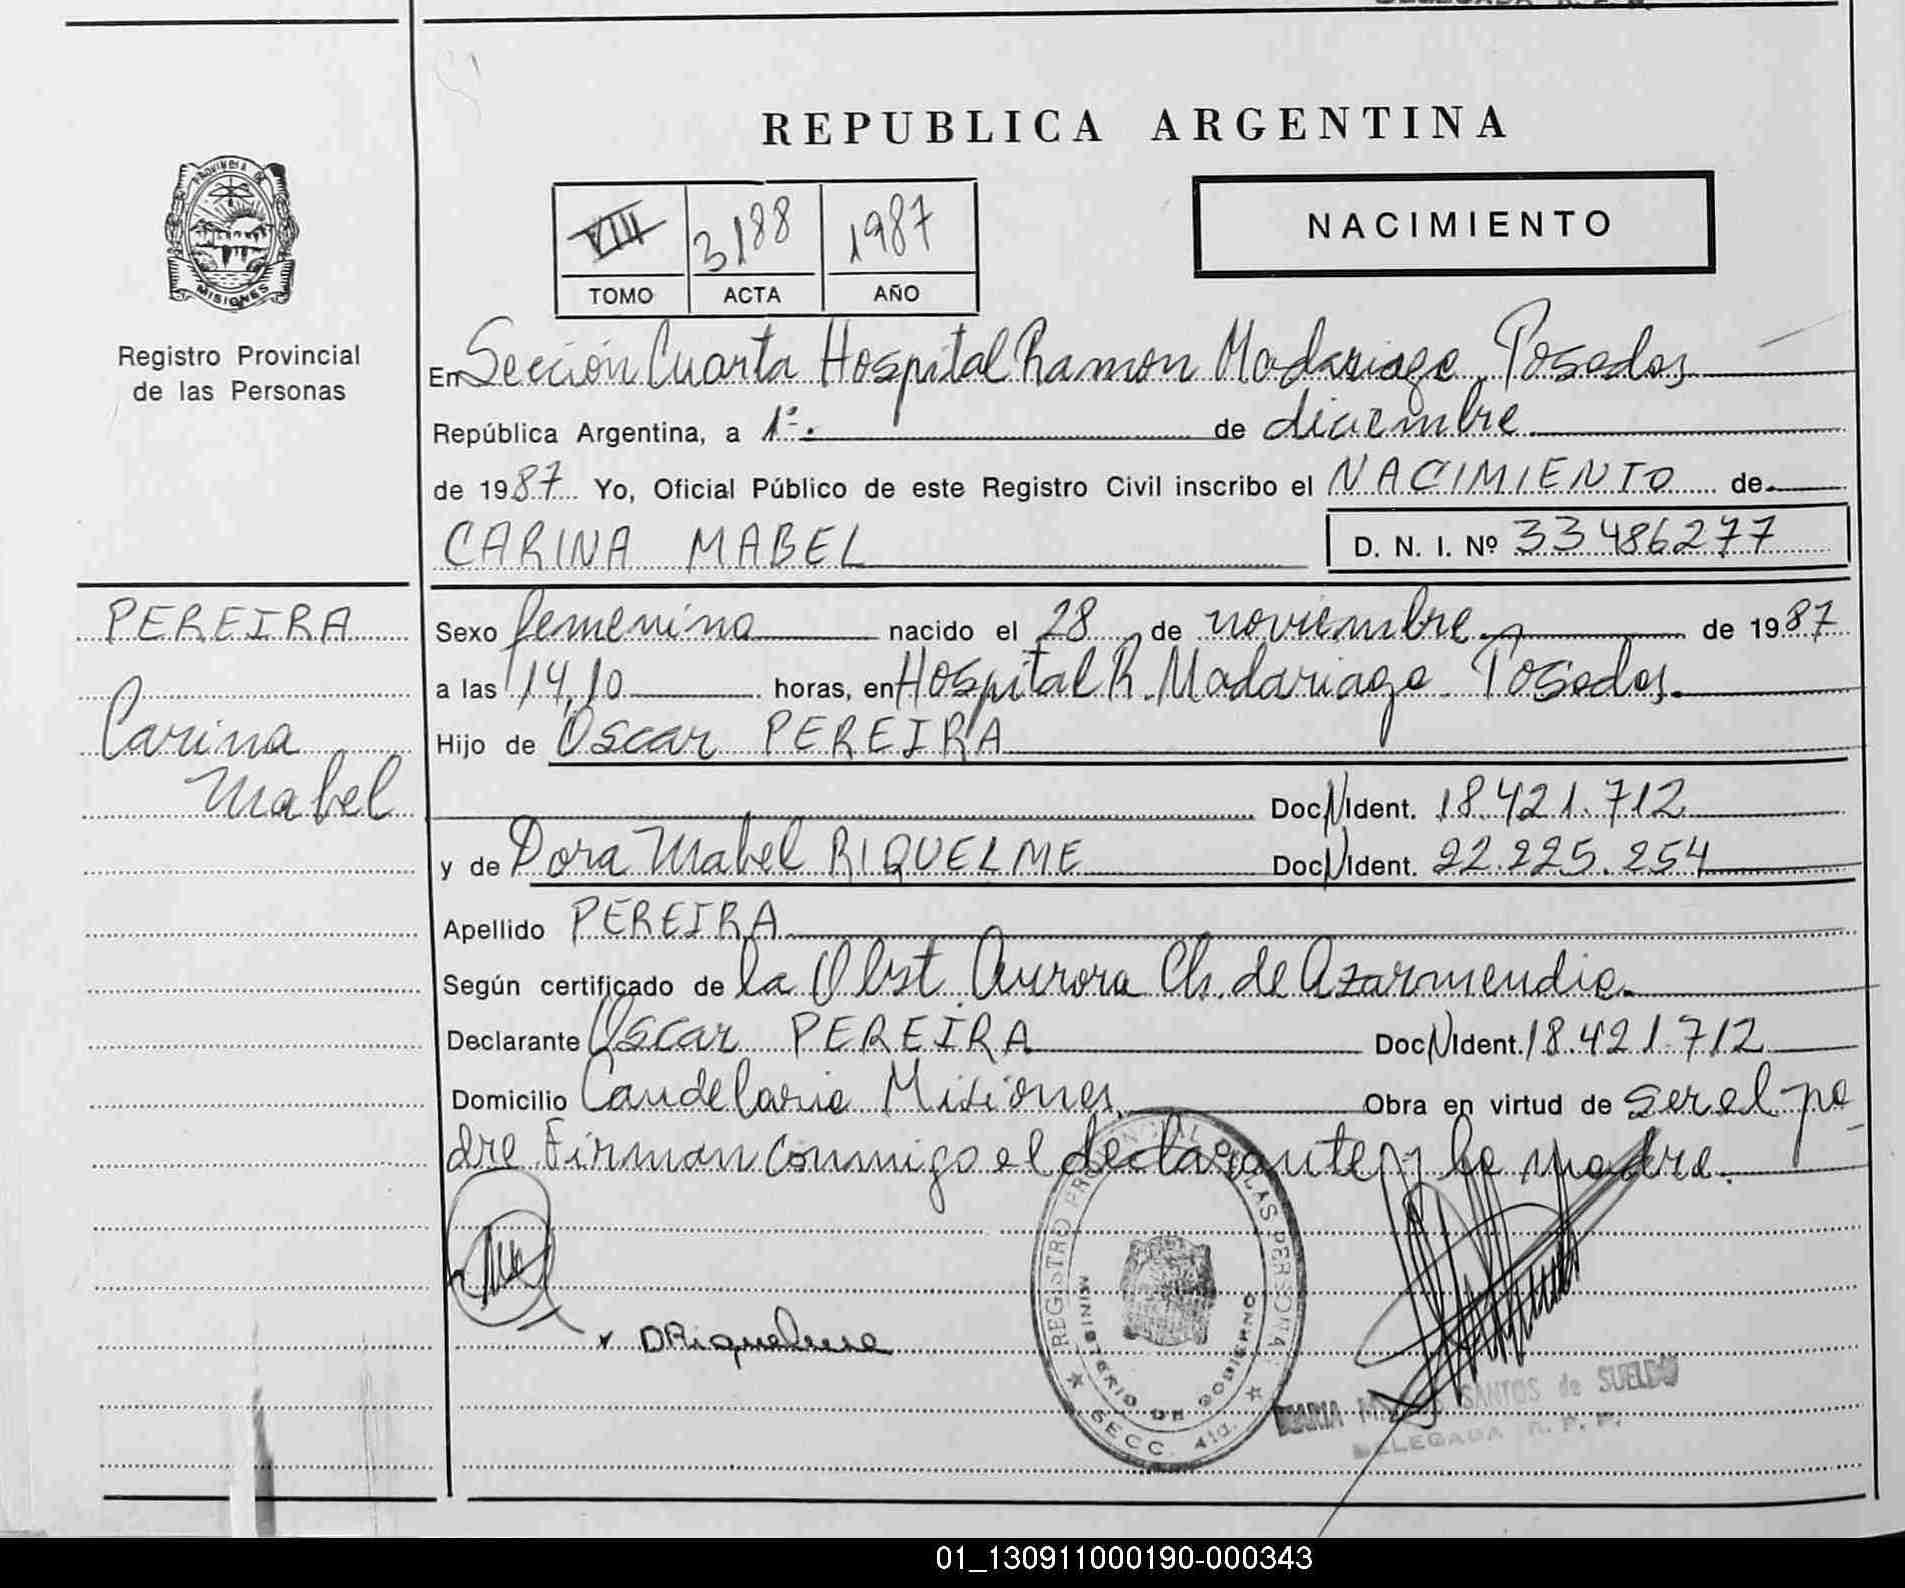 REPUBLICA ARGENTINA
PROVINCIA DE
MISIONES
Registro Provincial
de las Personas
VIII 3188 1987
TOMO ACTA AÑO
NACIMIENTO
En Sección Cuarta Hospital Ramon Madariaga Posadas
República Argentina, a 1º. de diciembre
de 1987 Yo, Oficial Público de este Registro Civil inscribo el NACIMIENTO de
CARINA MABEL D. N. I. Nº 33486277
PEREIRA
Carina
Mabel
Sexo femenino nacido el 28 de noviembre de 1987
a las 14,10 horas, en Hospital R. Madariaga Posadas.
Hijo de Oscar PEREIRA
Doc N Ident. 18.421.712
y de Dora Mabel RIQUELME Doc N Ident. 22.225.254
Apellido PEREIRA
Según certificado de la Obst. Aurora Ch. de Azarmendia.
Declarante Oscar PEREIRA Doc N Ident. 18.421.712
Domicilio Candelaria Misiones. Obra en virtud de ser el pa
dre Firman conmigo el declarante y la madre.
DRiquelme
REGISTRO PROVINCIAL DE LAS PERSONAS
MINISTERIO DE GOBIERNO
SECC. 4ta.
MARIA SANTOS de SUELDO
DELEGADA R. P. P.
01_130911000190-000343